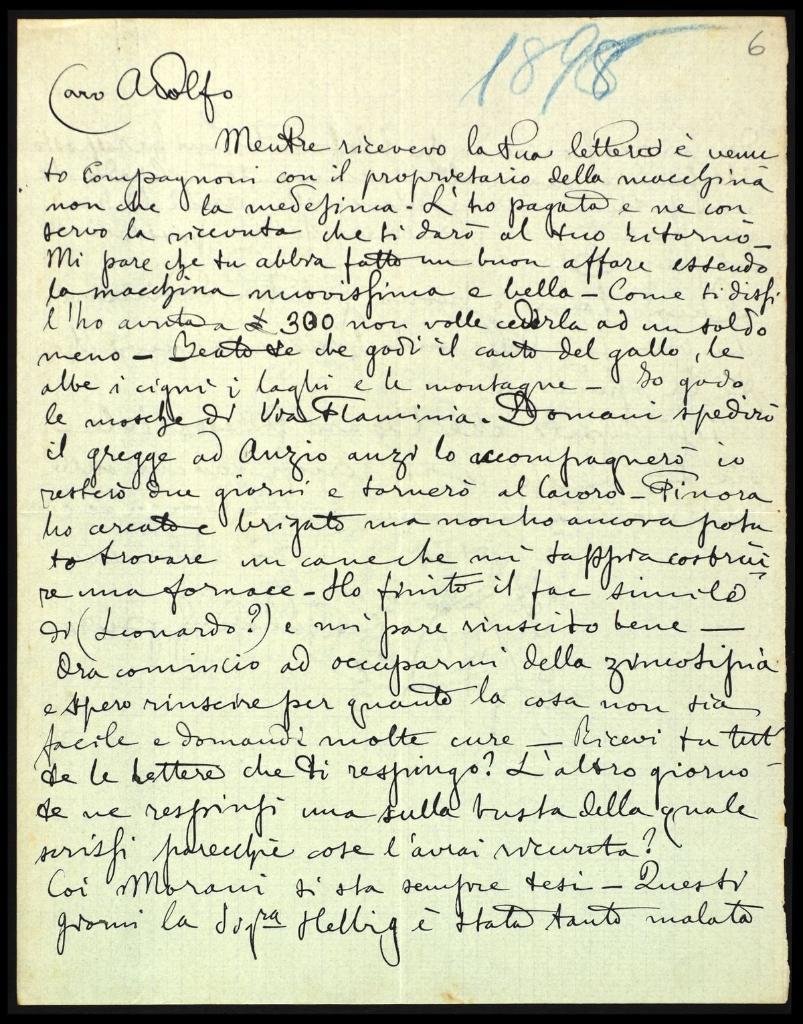 1898
6
Caro Adolfo
Mentre ricevevo la tua lettera è venu
to Compagnoni con il proprietario della macchina
non che la medesima. L'ho pagata e ne con
servo la ricevuta che ti darò al tuo ritorno –
Mi pare che tu abbia fatto un buon affare essendo
la macchina nuovissima e bella – Come ti dissi
l'ho avuta a £ 300 non volle cederla ad un soldo
meno – Beato te che godi il canto del gallo, le
albe i cigni i laghi e le montagne – Io godo
le mosche di Via Flaminia. Domani spedirò
il gregge ad Anzio anzi lo accompagnerò io
resterò due giorni e tornerò al lavoro – Finora
ho cercato e brigato ma non ho ancora potu
to trovare un cane che mi sappia costrui
re una fornace – Ho finito il fac simile
di (Leonardo?) e mi pare riuscito bene —
Ora comincio ad occuparmi della zincotipia
e spero riuscire per quanto la cosa non sia
facile e domandi molte cure — Ricevi tu tut
te le lettere che ti respingo? L'altro giorno
te ne respinsi una sulla busta della quale
scrissi parecchie cose l'avrai ricevuta?
Coi Morani si sta sempre tesi – Questi
giorni la Sigra Helbig è stata tanto malata